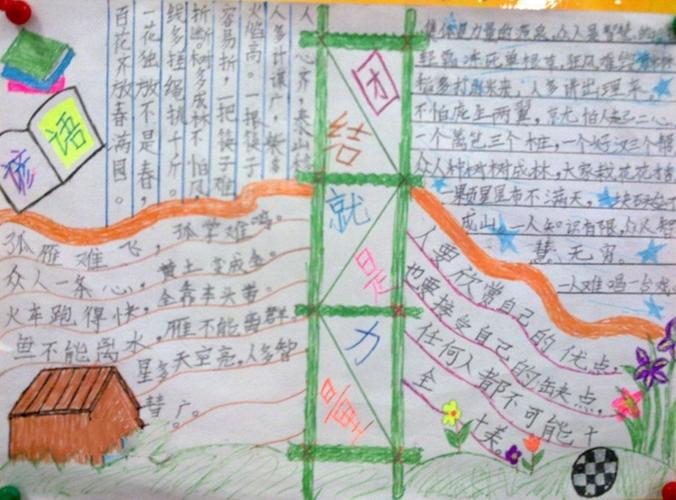 谚语
团
结
就
是
力
量
人心齐,泰山移
人多计谋广,柴多
火焰高。一根筷子
容易折,一把筷子难
折断。树多成林不怕风
线多搓绳挑千斤。
一花独放不是春,
百花齐放春满园。
孤雁难飞,孤掌难鸣。
众人一条心,黄土变成金。
火车跑得快,全靠车头带。
鱼不能离水,雁不能离群。
星多天空亮,人多智
慧广。
集体是力量的源泉,众人是智慧的
轻霜冻死单根草,狂风难毁
稻多打出米来,人多讲出理来。
不怕虎生两翼,就怕人起二心
一个篱笆三个桩,一个好汉三个帮
众人种树树成林,大家栽花花才香
一颗星星布不满天,一块石头
成山。一人知识有限,众人智
慧无穷。
一人难唱一台戏
人要欣赏自己的优点,
也要接受自己的缺点,
任何人都不可能十
全十美。